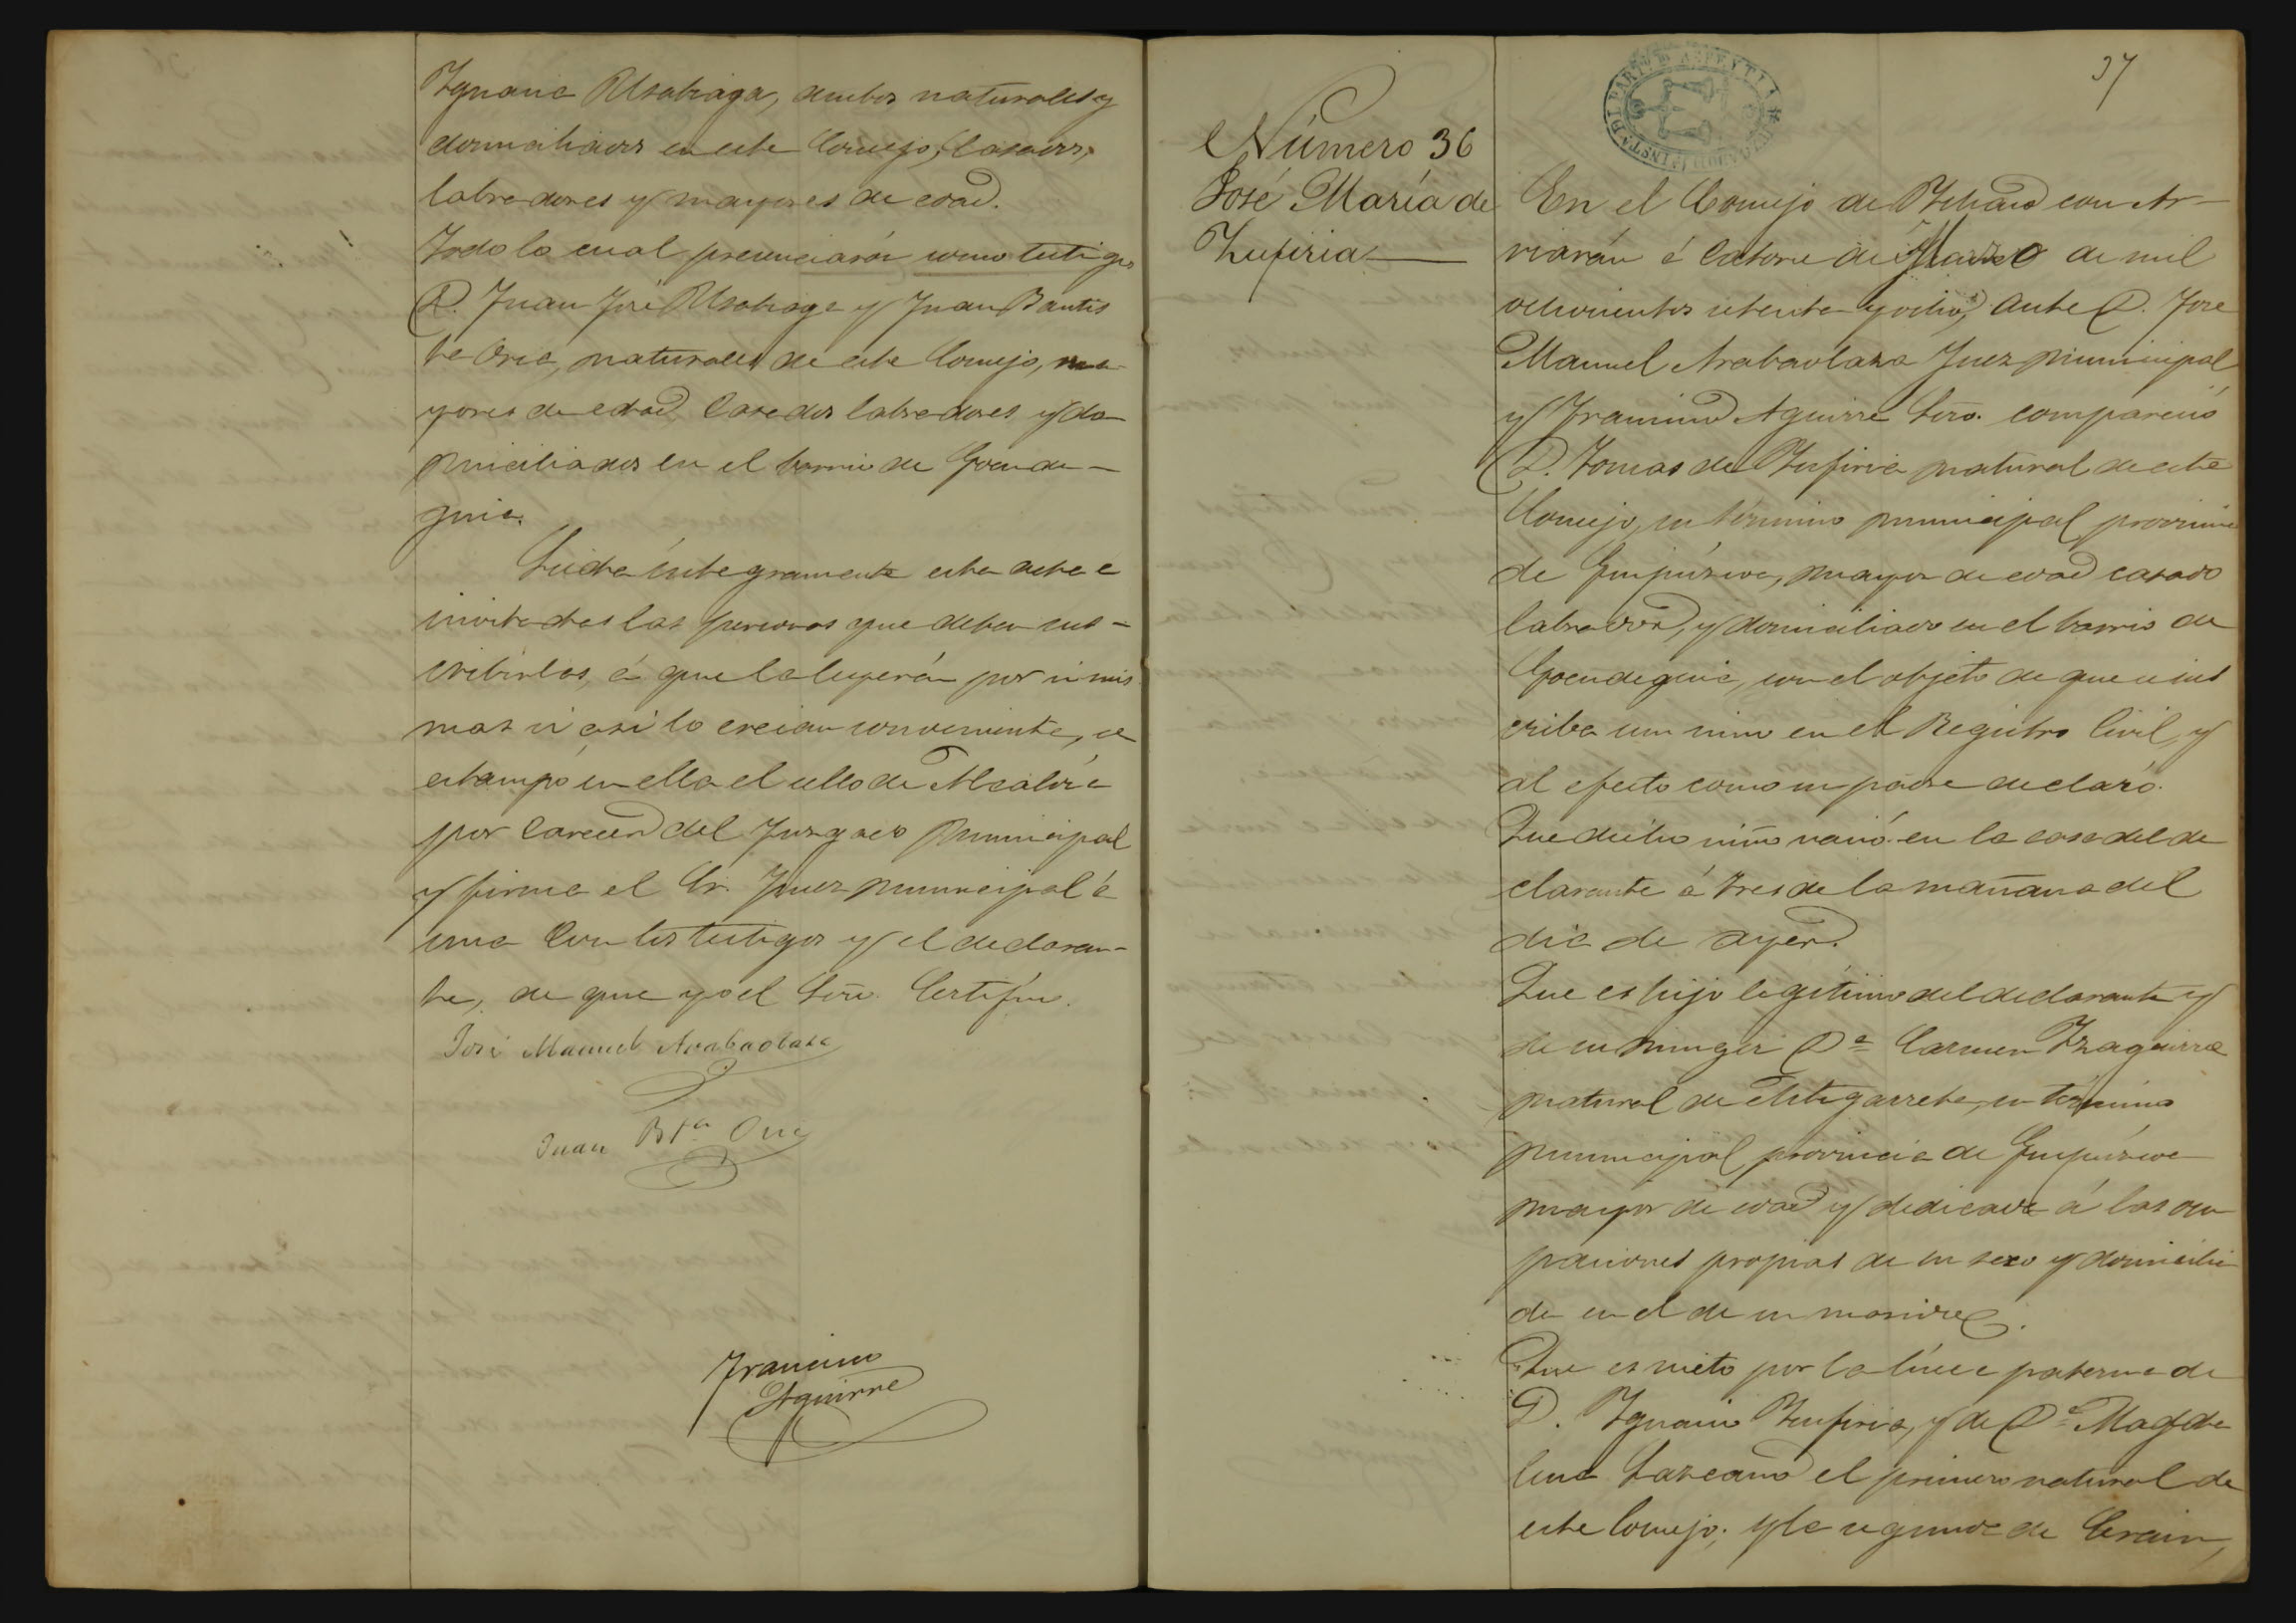 Ygnacia Usabiaga, ambos naturales y
domiciliados en este Concejo, Casados,
labradores y mayores de edad.
Todo lo cual presenciarón como testigos
D. Juan José Usabiaga y Juan Bautis
ta Oria, naturales de este Concejo, ma
yores de edad Casados labradores y do
miciliados en el barrio de Goende-
guia.
Leida íntegramente esta acta é
invitadas las personas que deben sus-
cribirlas, á que la leyerán por si mis
mas si así lo creian conveniente, se
estampó en ella el sello de Alcaldía
por Carecer del Juzgado municipal
y firma el Sr. Juez municipal á
una Con los testigos y el declaran-
te, de que yo el Srio. Certifico.
José Manuel Arabaolaza
Juan Bta Oria
Francisco
Aguirre
37
Número 36
José María de
Zufiria
En el Concejo de con Ar-
riarán á Catorce de Marzo de mil
ochocientos setenta y ocho, ante D. José
Manuel Arabaolaza Juez municipal
y Francisco Aguirre Srio. compareció
D. Tomas de Zufiria natural de este
Concejo, su término municipal, provincia
de Guipúzcoa, mayor de edad casado
labrador, y domiciliado en el barrio de
Goendeguia, con el objeto de que se ins
criba un niño en el Registro Civil, y
al efecto como su padre declaró.
Que dicho niño nació en la casa del de
clarante á tres de la mañana del
dia de ayer.
Que es hijo legítimo del declarante y
de su muger Da Carmen Yzaguirre
natural de Astigarreta, su término
municipal, provincia de Guipúzcoa
mayor de edad y dedicada á las ocu
paciones propias de su sexo y domicilia
da en el de su marido.
Que es nieto por la línea paterna de
D. Ygnacio Zufiria, y de Da Magda
lena Lazcano el primero natural de
este Concejo, y la segunda de Cerain,